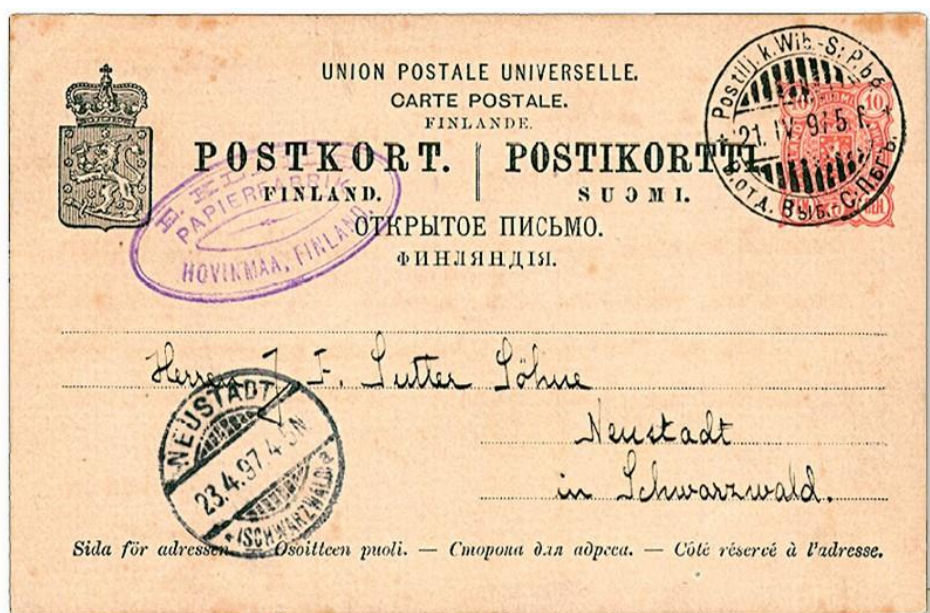 UNION POSTALE UNIVERSELLE.
CARTE POSTALE.
FINLANDE.
POSTKORT. | POSTIKORTTI
FINLAND. SUOMI.
ОТКРЫТОЕ ПИСЬМО.
ФИНЛЯНДІЯ.
PAPIERFABRIK
HOVINMAA, FINLAND.
Postilj. k. Wib.-S:P:bg
21. IV 97 5 f.
П.ОТД. ВЫБ.-С.П.БГЪ.
10 SUOMI 10
Herren J. F. Sutter Söhne
Neustadt
in Schwarzwald.
NEUSTADT
23.4.97.4-5N
(SCHWARZWALD)a
Sida för adressen. — Osoitteen puoli. — Сторона для адреса. — Côté réservé à l'adresse.